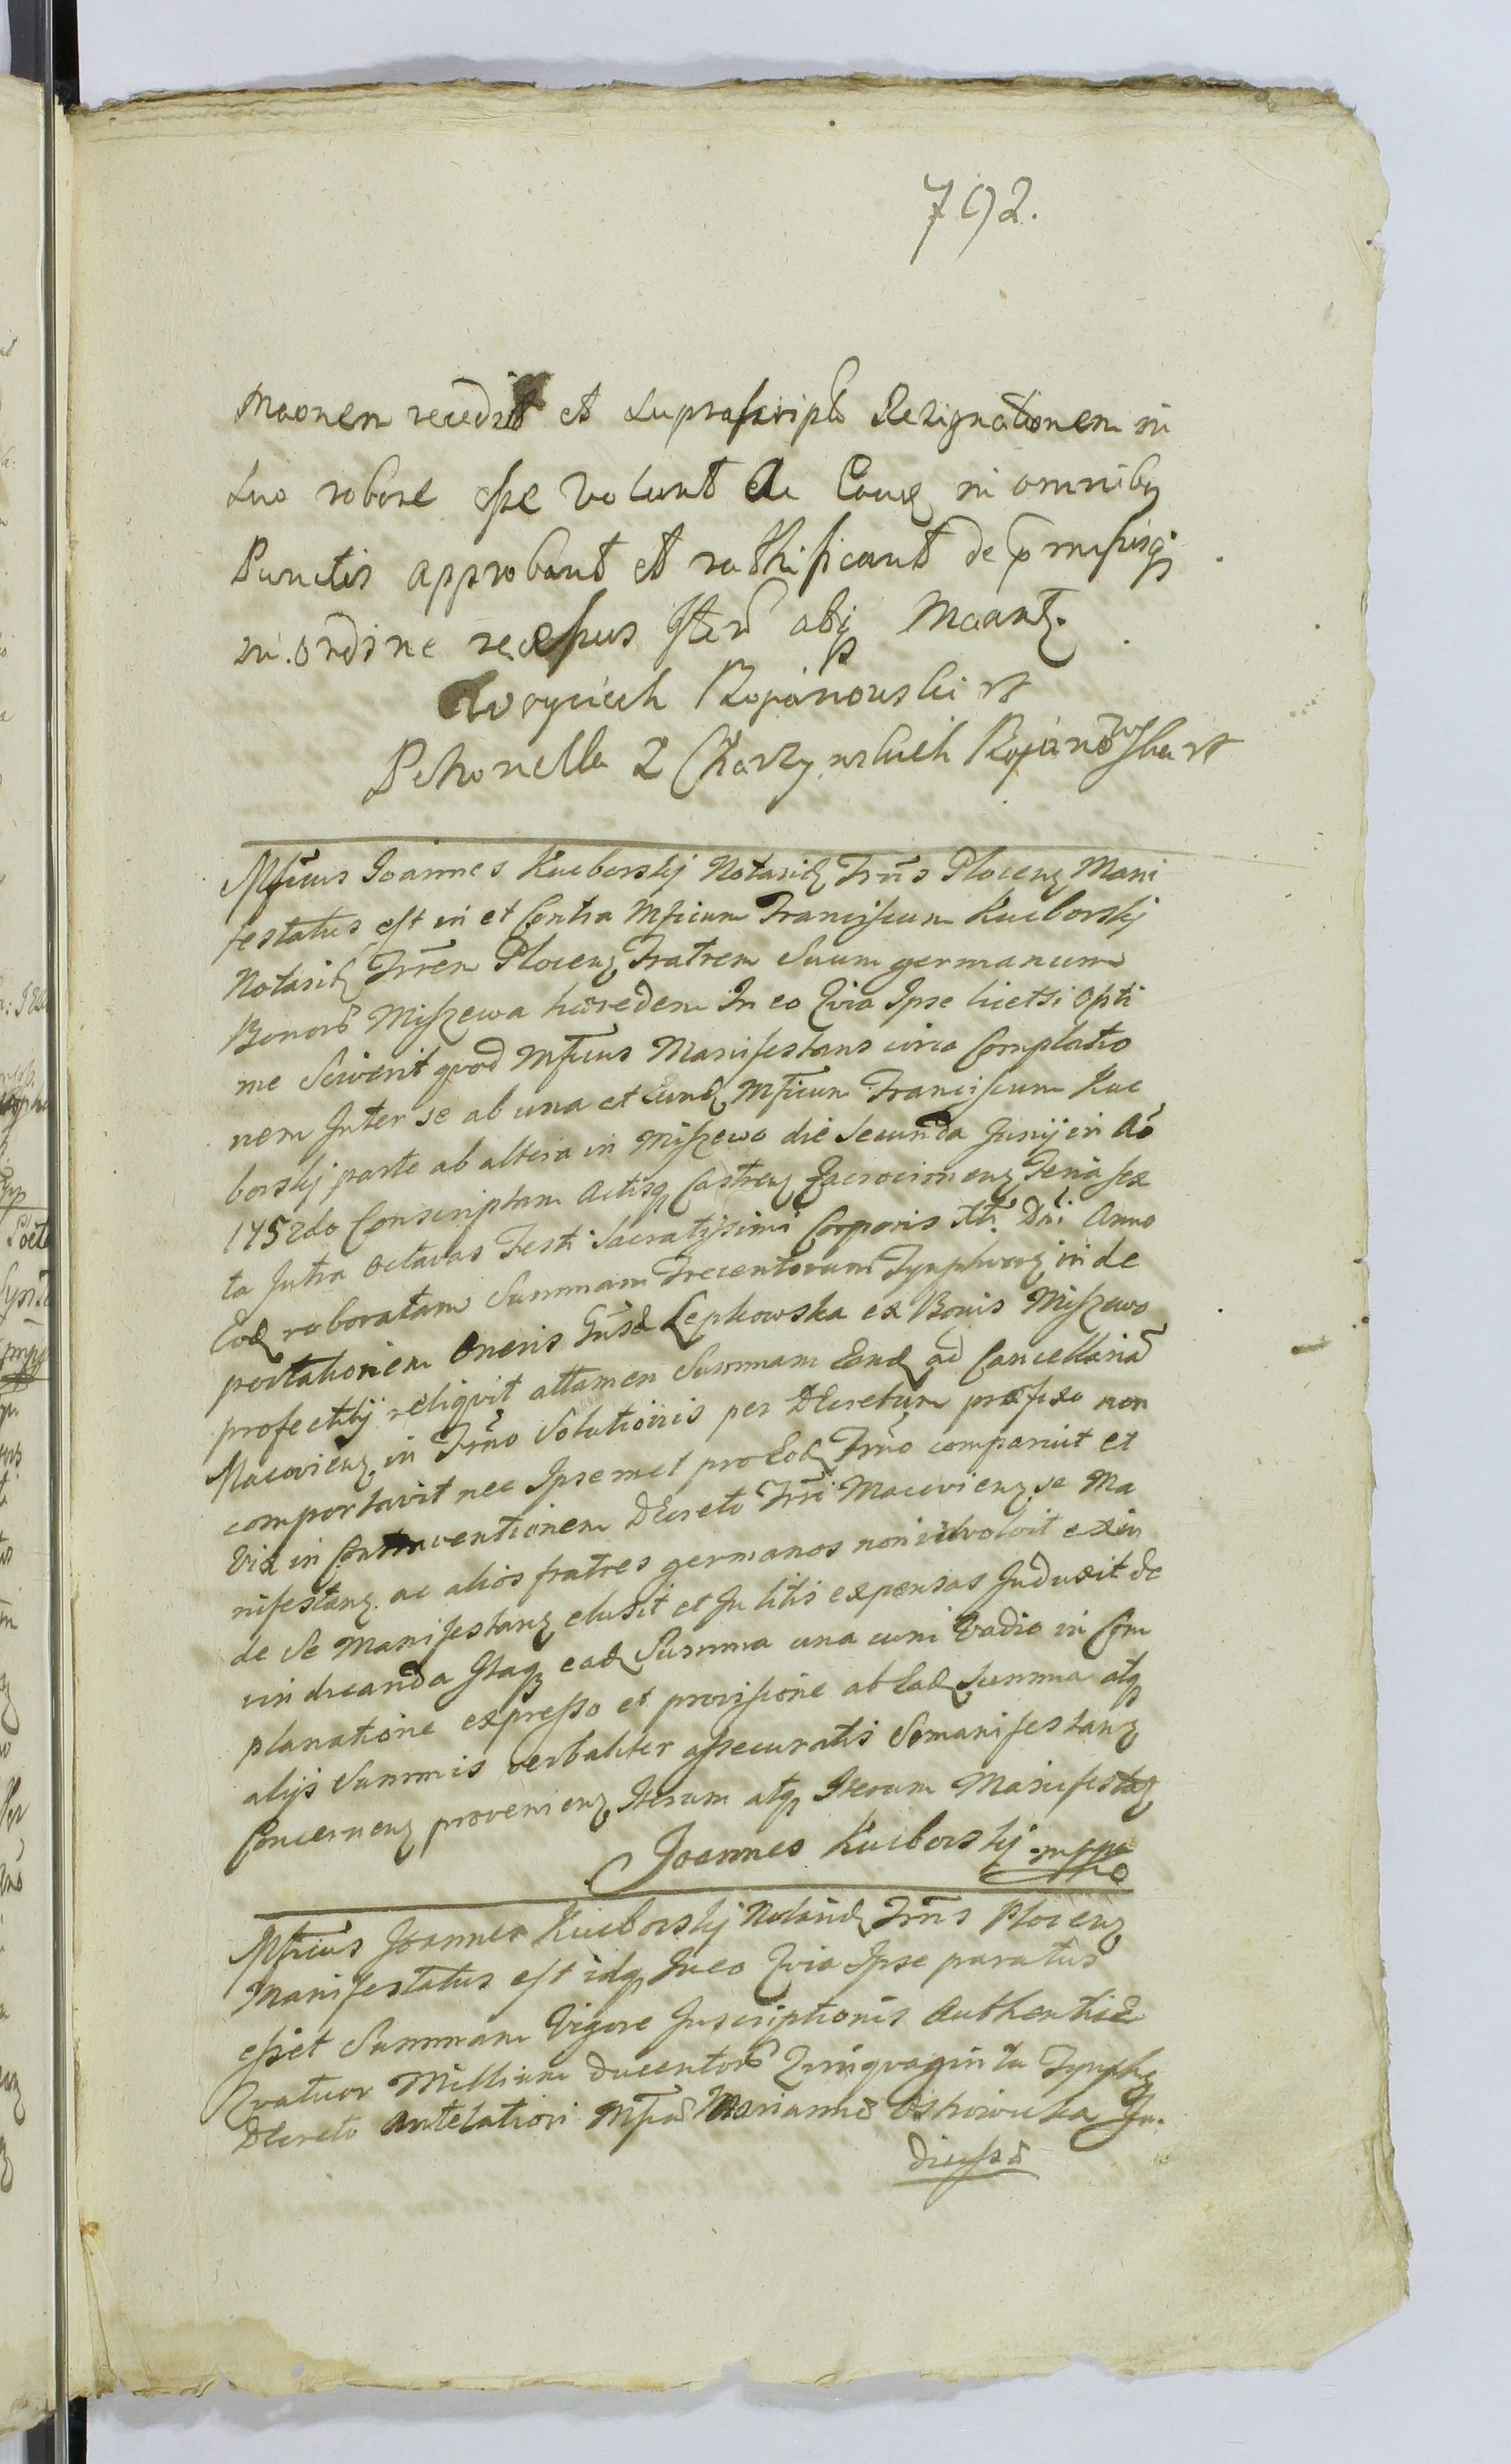 792.
Maonem recedit et suprascripta Resignationem in
suo robore esse volunt ac Eand in omnibq
Punctis approbant et rathificant de pmissisq
in ordine recessus Iterū atq Maantz.
Woyciech Rojanowski rt
Petronella Z Charzynskich Rojanowska rt
Mficus Joannes Kucborskij Notariq Trris Plocenz Mani
festatus est in et Contra Mficum Franciscum Kucborskij
Notariq Trrem Plocenz Fratrem Suum germanum
Bonorū Miszewa hæredem In eo Qvia Ipse licetsi Opti
me Sciverit qvod Mficus Manifestans circa Complatio
nem Inter se ab una et Eund Mficum Franciscum Kuc
borskij parte ab altera in Miszewo die Secunda Junij in Aō
1752do Conscriptam Actisq Castren Zacrocimenz Feria sex
ta Intra Octavas Festi Sacratissimi Corporis Xti Dni Anno
Eod roboratam Summam Trecentorum Tynphorz in de
portationem Oneris Gnsd Lepkowska ex Bonis Miszewo
profectilij reliqvit attamen Summam Eand ad Cancellariā
Macovienz in Trno Solutionis per Decretum præfixo non
comportavit nec Ipsemet pro Eod Trno comparuit et
Vix in Contraventionem Decreto Trri Macovienz se Ma
nifestanz ac alios fratres germanos non idvolvit exin
de Se Manifestanz elusit et In litis expensas Induxit de
vindicanda Itaq ead Summa una cum Vadio in Com
planatione expresso et provisione ab Ead Summa atq
alijs Summis verbaliter assecuratis Semanifestanz
Concernenz provenienz Iterum atq Iterum Manifestaz
Joannes Kucborskij mppa
Mficus Joannes Kucborskij Notariq Trris Plocenz
Manifestatus est idq In eo Qvia Ipse paratus
esset Summam Vigore Inscriptionis Authenticæ
Qvatuor Millium ducentorū Qvinqvaginta Tynphz
Decreto Antelationi Mficæ Mariannæ Ostrowska Ju.
dicessæ